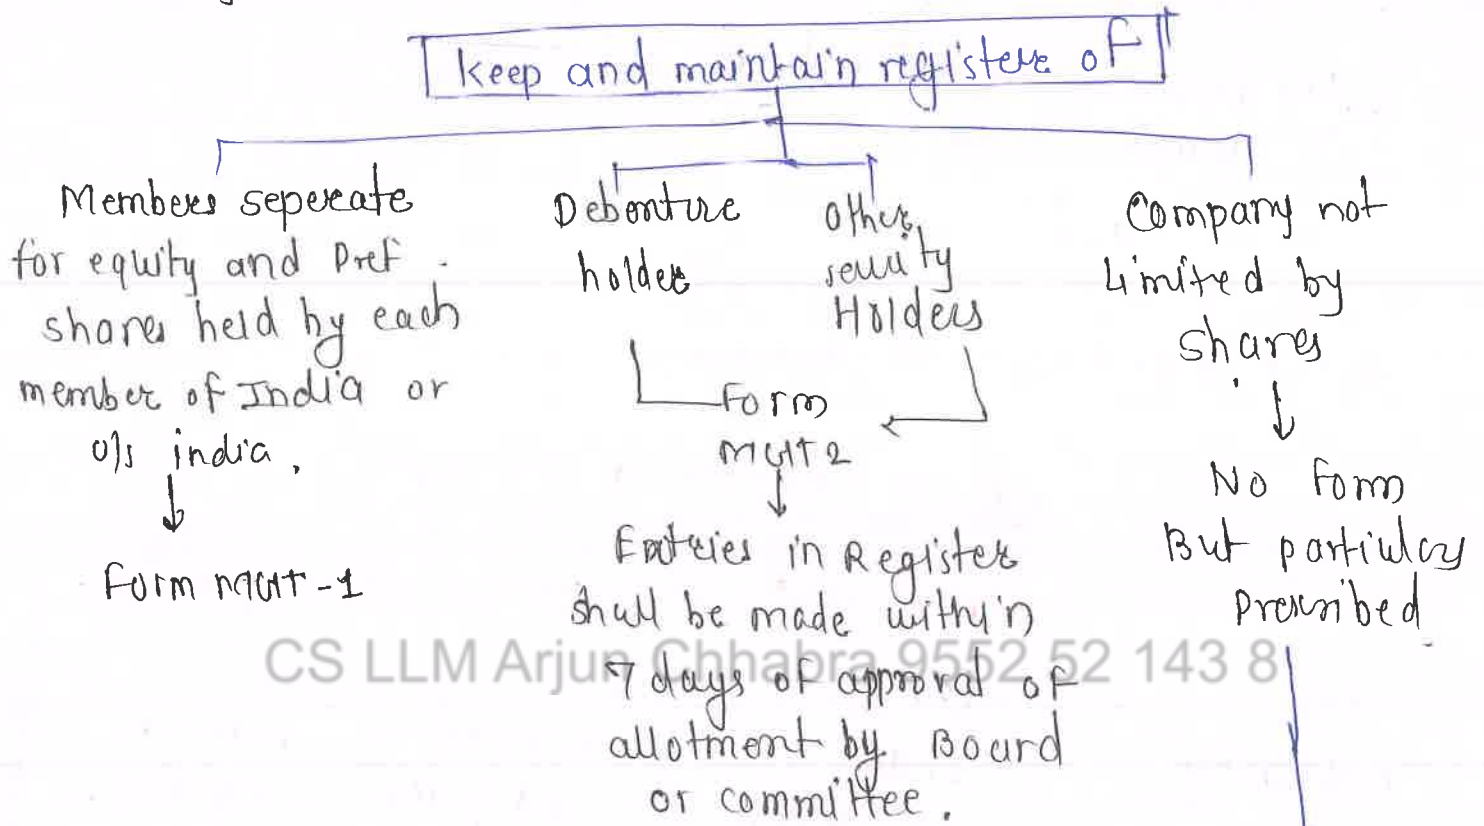 keep and maintain registers of
Members seperate
for equity and Pref.
shares held by each
member of India or
o/s india.
Form MGT-1
Debenture
holder
Other
security
Holders
Form
MGT 2
Entries in Register
shall be made within
7 days of approval of
allotment by Board
or committee.
Company not
Limited by
shares
No Form
But particulars
Prescribed
CS LLM Arjun Chhabra 9552 52 143 8